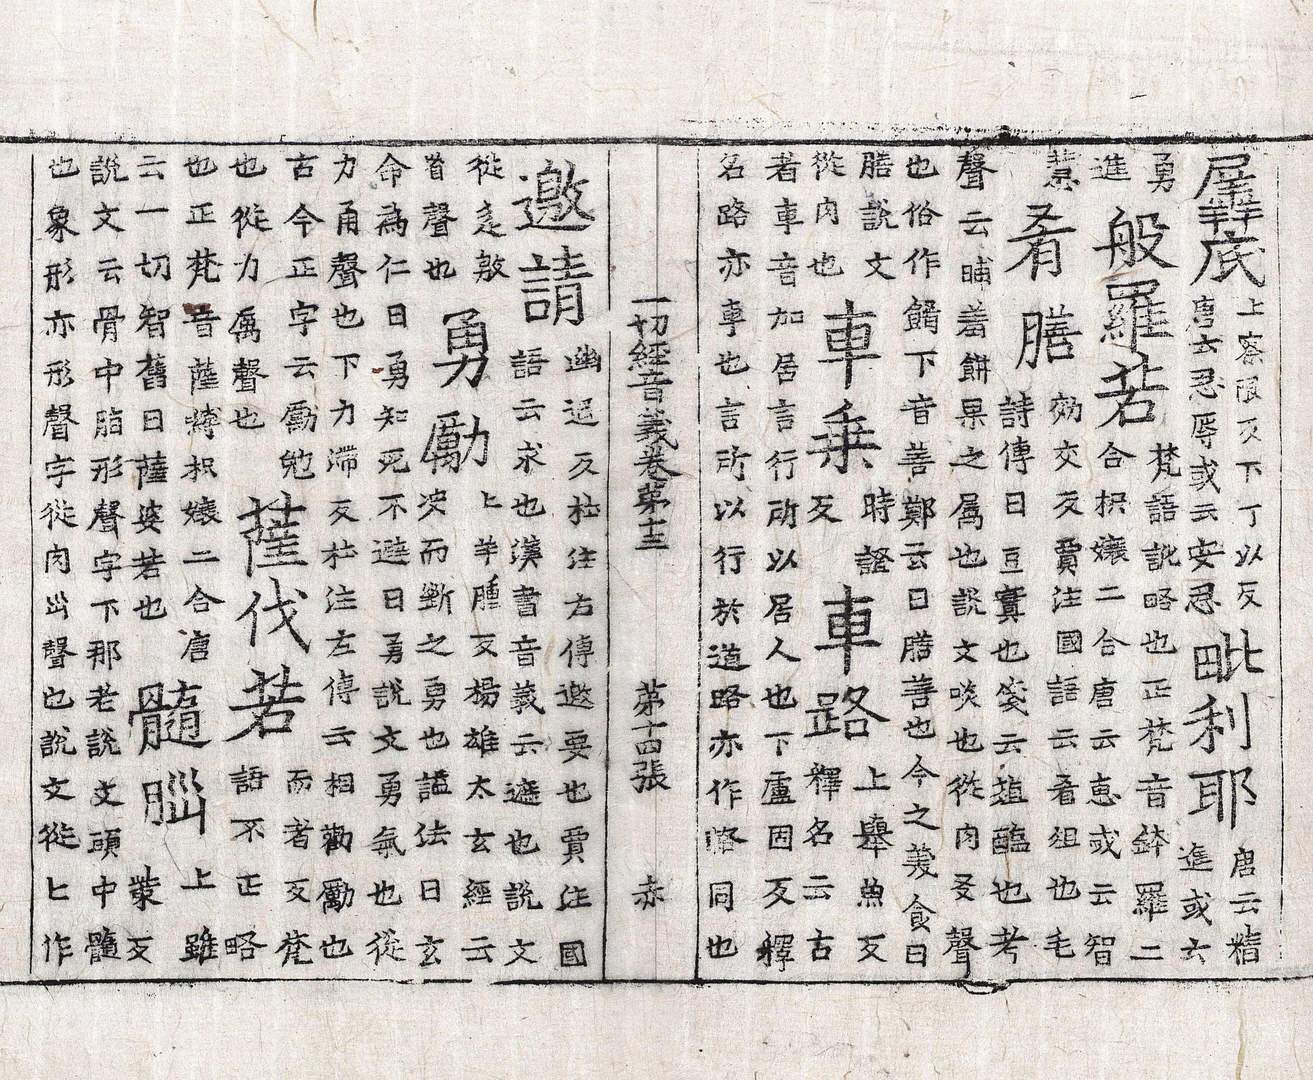 羼底 上察限反下丁以反唐云忍辱或云安忍 毗利耶 唐云精進或云
勇進 般羅若 梵語訛略也正梵音鉢羅二合枳孃二合唐云惠或云智
慧 肴膳 効交反賈注國語云肴俎也毛詩傳曰豆實也箋云葅醢也考
聲云脯羞餅果之屬也說文啖也從肉爻聲
也俗作餚下音善鄭云曰膳善也今之美食曰
膳說文從肉也 車乘 時證反 車路 上舉魚反釋名云古
者車音加居言行所以居人也下盧固反釋
名路亦車也言所以行於道路亦作輅同也
一切經音義卷第十三 第十四張 赤
邀請 幽遥反杜注左傳邀要也賈注國語云求也漢書音義云遮也說文
從辵敫省聲也 勇勵 上羊腫反楊雄太玄經云決而斷之勇也謚法曰玄
命為仁曰勇知死不避曰勇說文勇氣也從
力甬聲也下力滯反杜注左傳云相勸勵也
古今正字云勵勉也從力厲聲也 薩伐若 而者反梵語不正略
也正梵音薩嚩枳孃二合唐云一切智舊曰薩婆若也 髓腦 上雖藂反
說文云骨中脂形聲字下那老說文頭中髓
也象形亦形聲字從肉𡿺聲也說文從匕作